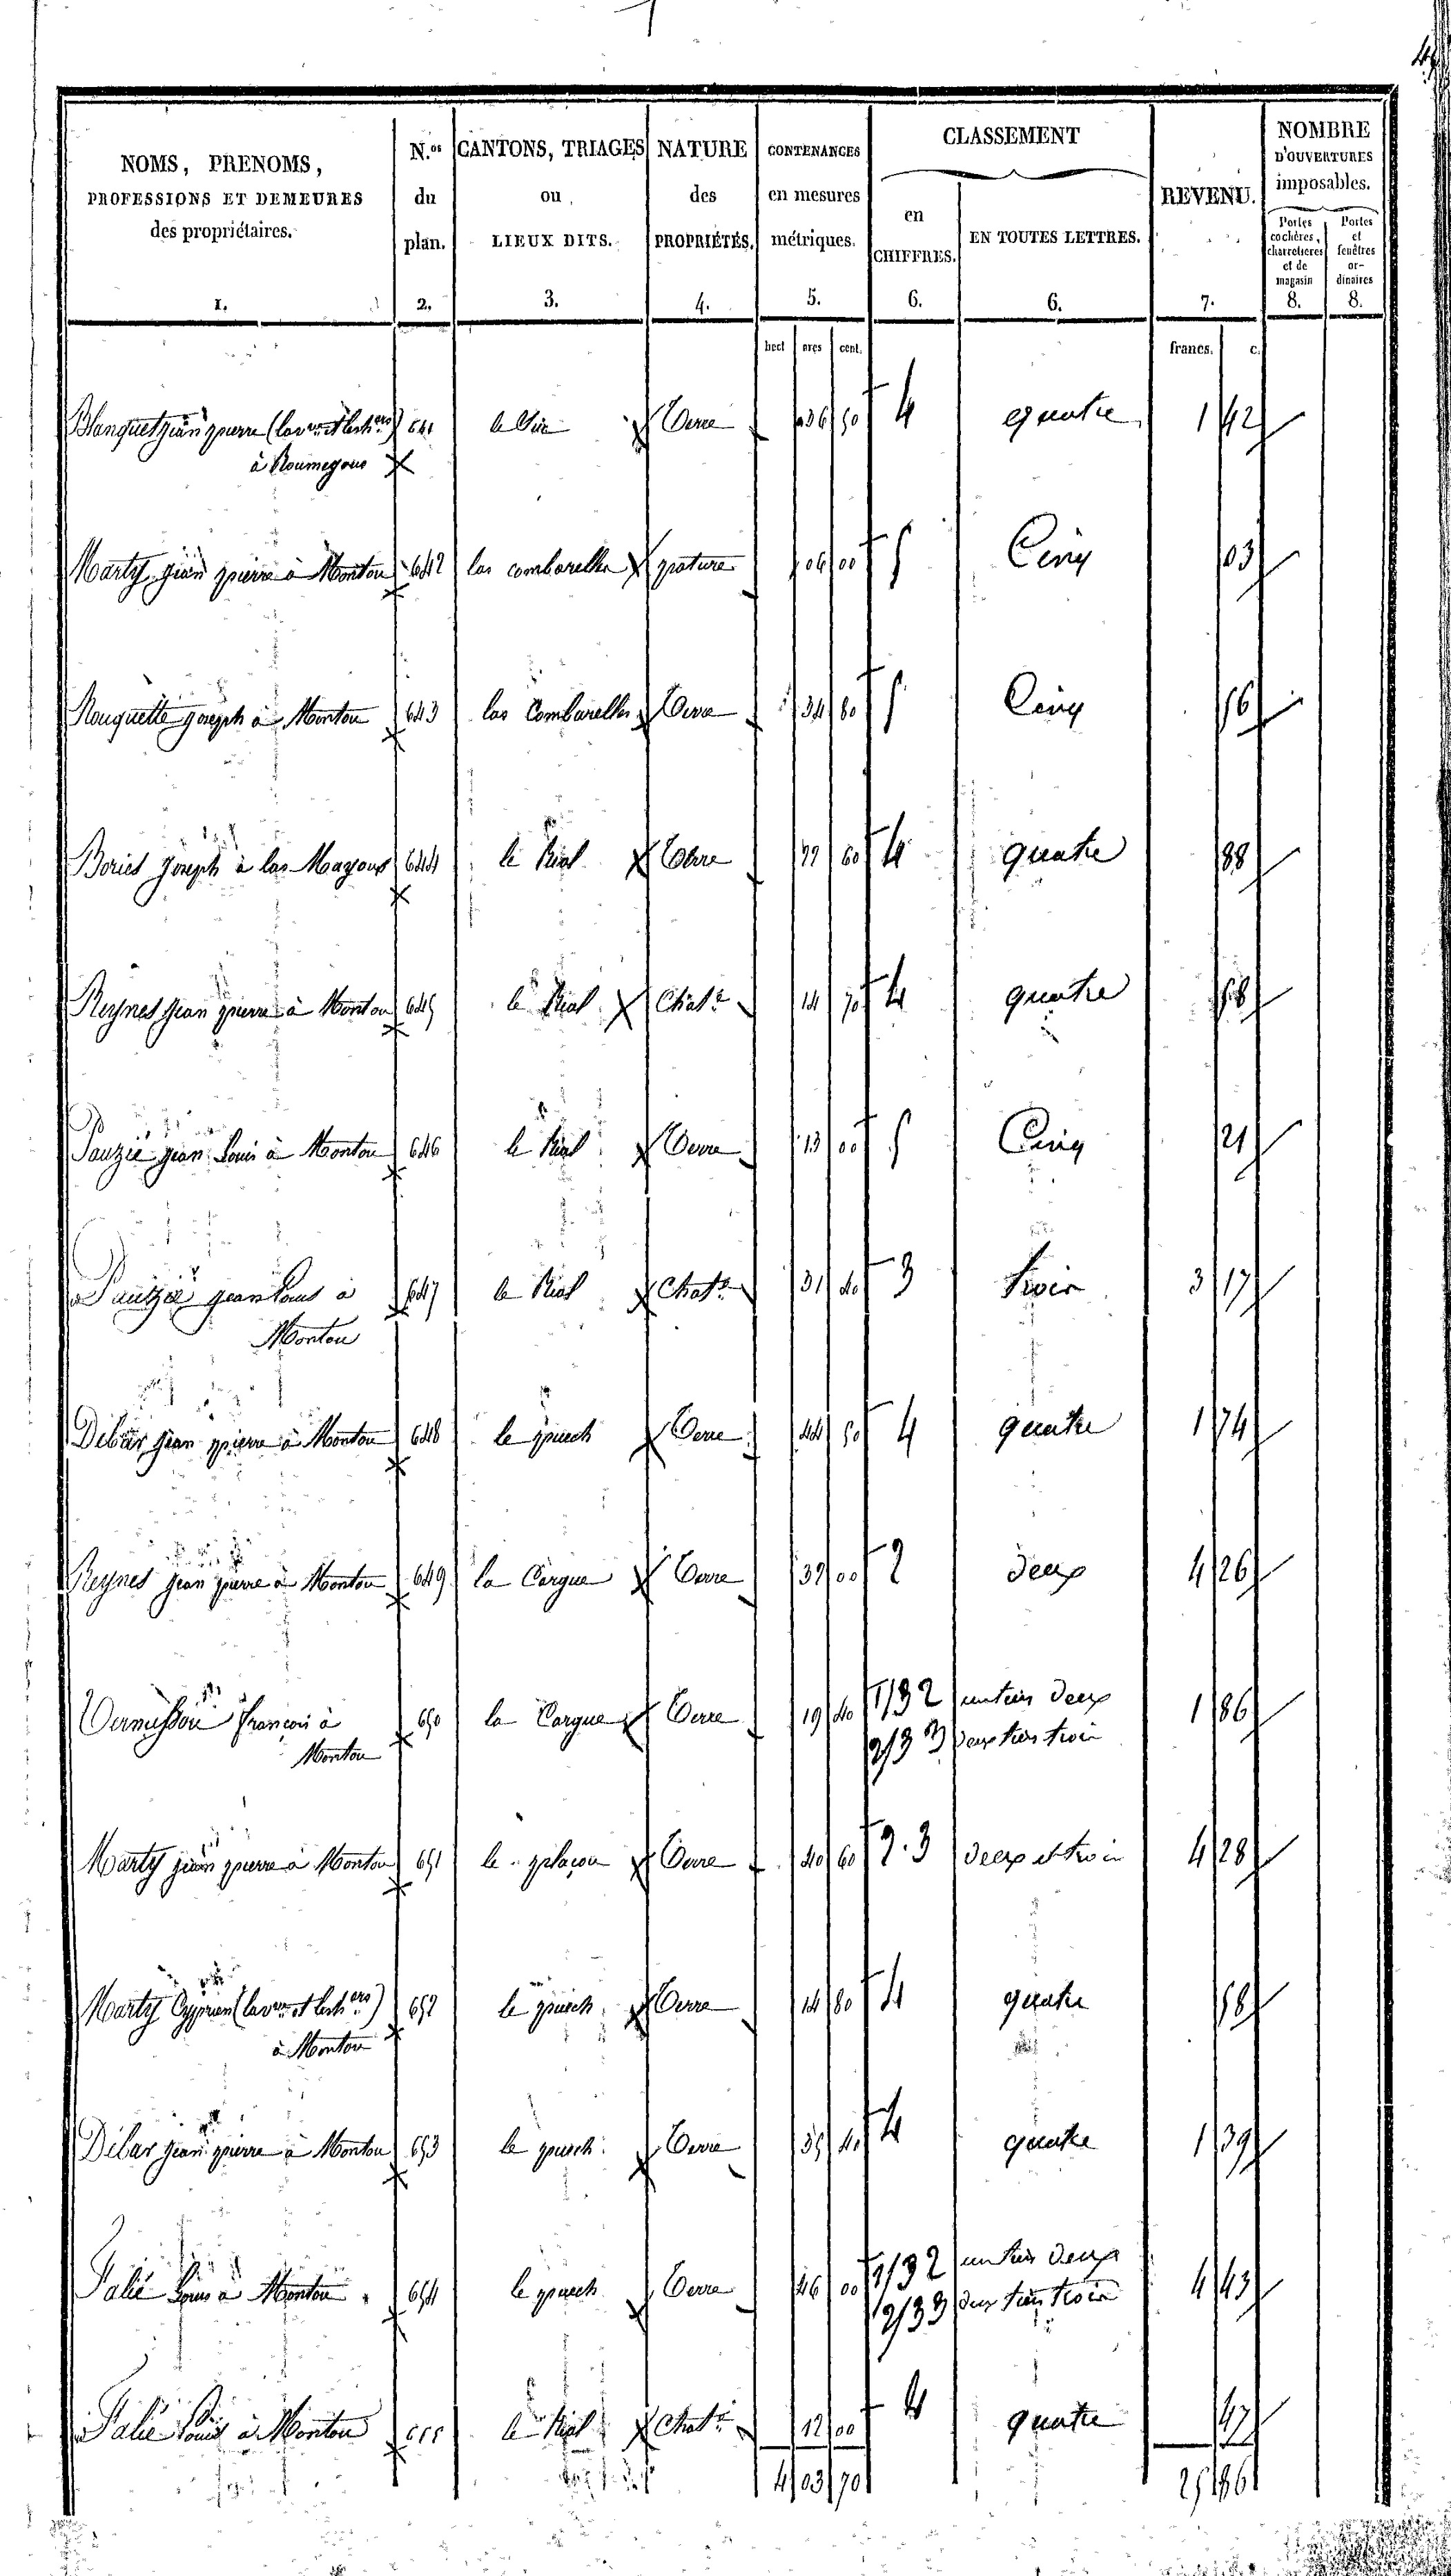 NOMS, PRENOMS, PROFESSIONS ET DEMEURES des propriétaires. 1.
N.os du plan. 2.
CANTONS, TRIAGES ou LIEUX DITS. 3.
NATURE des PROPRIÉTÉS. 4.
CONTENANCES en mesures métriques. 5.
CLASSEMENT
en CHIFFRES. 6.
EN TOUTES LETTRES. 6.
REVENU. 7.
NOMBRE D'OUVERTURES imposables.
Portes cochères, charretieres et de magasin 8.
Portes et fenêtres ordinaires 8.
hect ares cent. francs. c.
Blanquet jean pierre (la ve et les hers) 641 le Terre 36 50 4 quatre 1 42
à Roumegous
Marty jean pierre à Montou 642 las combarelles pature 06 00 5 Cinq 03
Rouquette joseph à Montou 643 las Combarelles Terre 34 80 5 Cinq 56
Bories joseph à las Mazous 644 le Rial Terre 22 60 4 quatre 88
Reynes jean pierre à Montou 645 le Rial Chat.e 14 70 4 quatre 58
Pauzié jean Louis à Montou 646 le Rial Terre 13 00 5 Cinq 21
Pauzié jean Louis à 647 le Rial Chat.e 31 40 3 trois 3 17
Montou
Débar jean pierre à Montou 648 le puech Terre 44 50 4 quatre 1 74
Reynes jean pierre à Montou 649 la Cargue Terre 32 00 2 deux 4 26
françois à 650 la Cargue Terre 19 40 1/3 2 un tiers deux 1 86
Montou 2/3 3 deux tiers trois
Marty jean pierre à Montou 651 le plaçou Terre 40 60 2.3 deux et trois 4 28
Marty Cyprien (la ve et les hers) 652 le puech Terre 14 80 4 quatre 58
à Montou
Débar jean pierre à Montou 653 le puech Terre 35 40 4 quatre 1 39
Falié Louis à Montou 654 le puech Terre 46 00 1/3 2 un tiers deux 4 43
2/3 3 deux tiers trois
Falié Louis à Montou 655 le Rial Chat.e 12 00 4 quatre 47
4 03 70 25 86